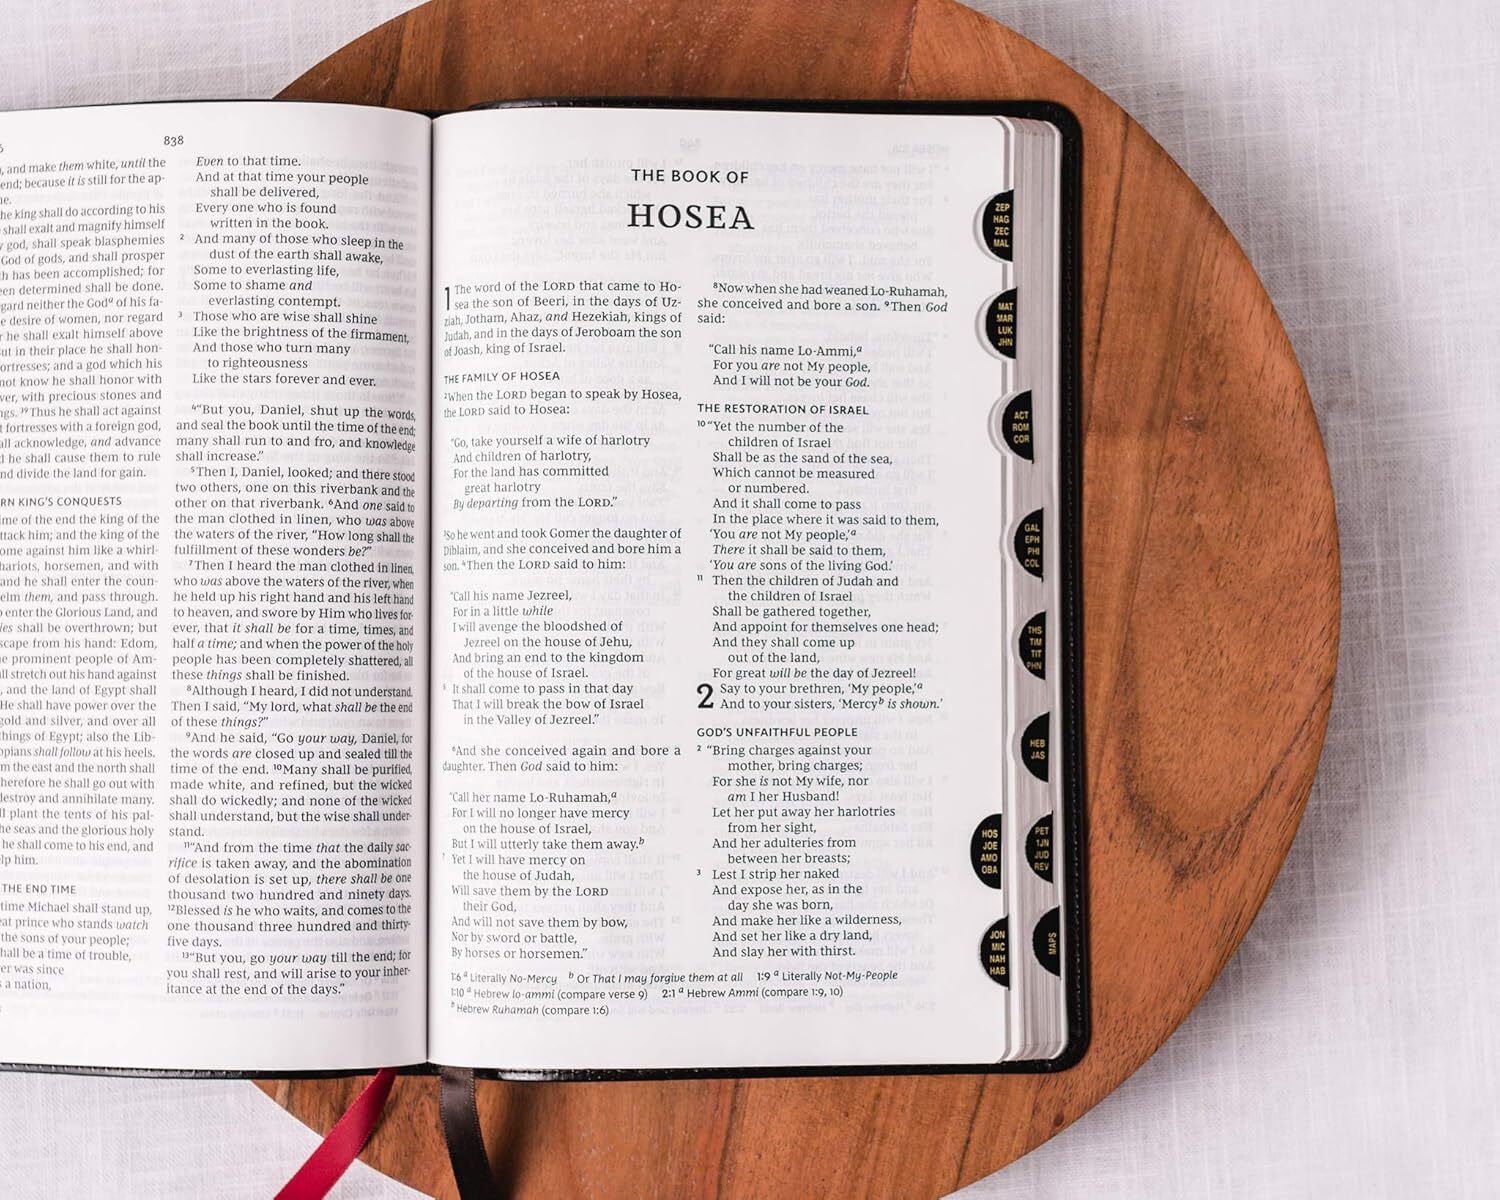 838
, and make them white, until the
end; because it is still for the ap-
he king shall do according to his
shall exalt and magnify himself
god, shall speak blasphemies
God of gods, and shall prosper
h has been accomplished; for
een determined shall be done.
gard neither the Godᵃ of his fa-
e desire of women, nor regard
r he shall exalt himself above
ut in their place he shall hon-
ortresses; and a god which his
not know he shall honor with
ver, with precious stones and
ngs. ³⁹Thus he shall act against
t fortresses with a foreign god,
all acknowledge, and advance
d he shall cause them to rule
nd divide the land for gain.
RN KING'S CONQUESTS
ime of the end the king of the
ttack him; and the king of the
ome against him like a whirl-
hariots, horsemen, and with
and he shall enter the coun-
elm them, and pass through.
enter the Glorious Land, and
ies shall be overthrown; but
scape from his hand: Edom,
e prominent people of Am-
ll stretch out his hand against
, and the land of Egypt shall
He shall have power over the
gold and silver, and over all
hings of Egypt; also the Lib-
opians shall follow at his heels.
m the east and the north shall
herefore he shall go out with
destroy and annihilate many.
ll plant the tents of his pal-
he seas and the glorious holy
he shall come to his end, and
lp him.
THE END TIME
time Michael shall stand up,
eat prince who stands watch
the sons of your people;
hall be a time of trouble,
er was since
a nation,
Even to that time.
And at that time your people
shall be delivered,
Every one who is found
written in the book.
² And many of those who sleep in the
dust of the earth shall awake,
Some to everlasting life,
Some to shame and
everlasting contempt.
³ Those who are wise shall shine
Like the brightness of the firmament,
And those who turn many
to righteousness
Like the stars forever and ever.
⁴“But you, Daniel, shut up the words,
and seal the book until the time of the end;
many shall run to and fro, and knowledge
shall increase.”
⁵Then I, Daniel, looked; and there stood
two others, one on this riverbank and the
other on that riverbank. ⁶And one said to
the man clothed in linen, who was above
the waters of the river, “How long shall the
fulfillment of these wonders be?”
⁷Then I heard the man clothed in linen,
who was above the waters of the river, when
he held up his right hand and his left hand
to heaven, and swore by Him who lives for-
ever, that it shall be for a time, times, and
half a time; and when the power of the holy
people has been completely shattered, all
these things shall be finished.
⁸Although I heard, I did not understand.
Then I said, “My lord, what shall be the end
of these things?”
⁹And he said, “Go your way, Daniel, for
the words are closed up and sealed till the
time of the end. ¹⁰Many shall be purified,
made white, and refined, but the wicked
shall do wickedly; and none of the wicked
shall understand, but the wise shall under-
stand.
¹¹“And from the time that the daily sac-
rifice is taken away, and the abomination
of desolation is set up, there shall be one
thousand two hundred and ninety days.
¹²Blessed is he who waits, and comes to the
one thousand three hundred and thirty-
five days.
¹³“But you, go your way till the end; for
you shall rest, and will arise to your inher-
itance at the end of the days.”
THE BOOK OF
HOSEA
1 The word of the LORD that came to Ho-
sea the son of Beeri, in the days of Uz-
ziah, Jotham, Ahaz, and Hezekiah, kings of
Judah, and in the days of Jeroboam the son
of Joash, king of Israel.
THE FAMILY OF HOSEA
²When the LORD began to speak by Hosea,
the LORD said to Hosea:
“Go, take yourself a wife of harlotry
And children of harlotry,
For the land has committed
great harlotry
By departing from the LORD.”
³So he went and took Gomer the daughter of
Diblaim, and she conceived and bore him a
son. ⁴Then the LORD said to him:
“Call his name Jezreel,
For in a little while
I will avenge the bloodshed of
Jezreel on the house of Jehu,
And bring an end to the kingdom
of the house of Israel.
⁵ It shall come to pass in that day
That I will break the bow of Israel
in the Valley of Jezreel.”
⁶And she conceived again and bore a
daughter. Then God said to him:
“Call her name Lo-Ruhamah,ᵃ
For I will no longer have mercy
on the house of Israel,
But I will utterly take them away.ᵇ
⁷ Yet I will have mercy on
the house of Judah,
Will save them by the LORD
their God,
And will not save them by bow,
Nor by sword or battle,
By horses or horsemen.”
⁸Now when she had weaned Lo-Ruhamah,
she conceived and bore a son. ⁹Then God
said:
“Call his name Lo-Ammi,ᵃ
For you are not My people,
And I will not be your God.
THE RESTORATION OF ISRAEL
¹⁰ “Yet the number of the
children of Israel
Shall be as the sand of the sea,
Which cannot be measured
or numbered.
And it shall come to pass
In the place where it was said to them,
‘You are not My people,’ᵃ
There it shall be said to them,
‘You are sons of the living God.’
¹¹ Then the children of Judah and
the children of Israel
Shall be gathered together,
And appoint for themselves one head;
And they shall come up
out of the land,
For great will be the day of Jezreel!
2 Say to your brethren, ‘My people,’ᵃ
And to your sisters, ‘Mercyᵇ is shown.’
GOD'S UNFAITHFUL PEOPLE
² “Bring charges against your
mother, bring charges;
For she is not My wife, nor
am I her Husband!
Let her put away her harlotries
from her sight,
And her adulteries from
between her breasts;
³ Lest I strip her naked
And expose her, as in the
day she was born,
And make her like a wilderness,
And set her like a dry land,
And slay her with thirst.
1:6 ᵃ Literally No-Mercy ᵇ Or That I may forgive them at all 1:9 ᵃ Literally Not-My-People
1:10 ᵃ Hebrew lo-ammi (compare verse 9) 2:1 ᵃ Hebrew Ammi (compare 1:9, 10)
ᵇ Hebrew Ruhamah (compare 1:6)
ZEP
HAG
ZEC
MAL
MAT
MAR
LUK
JHN
ACT
ROM
COR
GAL
EPH
PHI
COL
THS
TIM
TIT
PHN
HEB
JAS
HOS
JOE
AMO
OBA
PET
1JN
JUD
REV
JON
MIC
NAH
HAB
MAPS